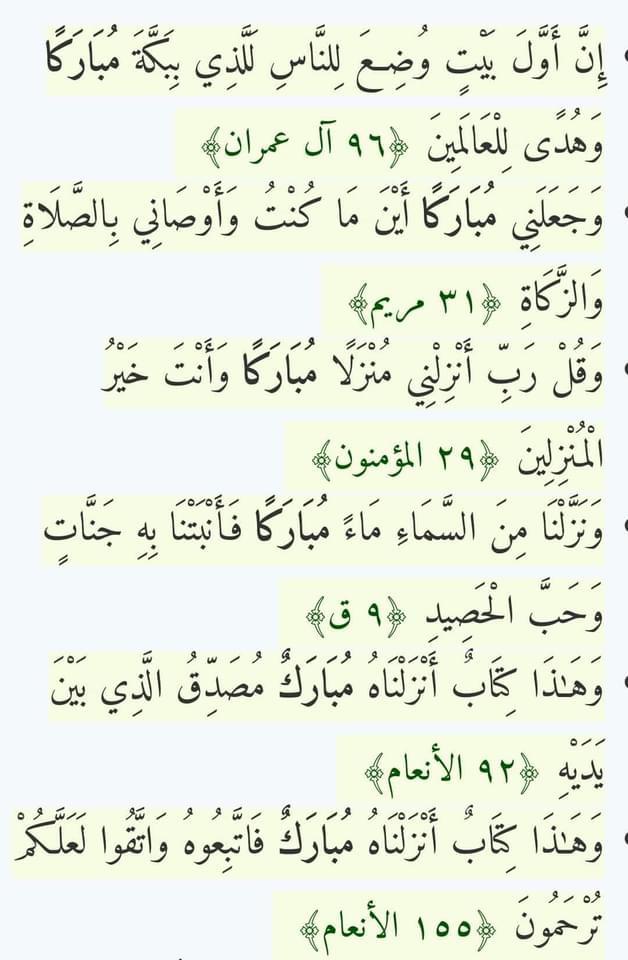 إِنَّ أَوَّلَ بَيْتٍ وُضِعَ لِلنَّاسِ لَلَّذِي بِبَكَّةَ مُبَارَكًا
وَهُدًى لِلْعَالَمِينَ ﴿٩٦ آل عمران﴾
وَجَعَلَنِي مُبَارَكًا أَيْنَ مَا كُنْتُ وَأَوْصَانِي بِالصَّلَاةِ
وَالزَّكَاةِ ﴿٣١ مريم﴾
وَقُلْ رَبِّ أَنْزِلْنِي مُنْزَلًا مُبَارَكًا وَأَنْتَ خَيْرُ
الْمُنْزِلِينَ ﴿٢٩ المؤمنون﴾
وَنَزَّلْنَا مِنَ السَّمَاءِ مَاءً مُبَارَكًا فَأَنْبَتْنَا بِهِ جَنَّاتٍ
وَحَبَّ الْحَصِيدِ ﴿٩ ق﴾
وَهَـٰذَا كِتَابٌ أَنْزَلْنَاهُ مُبَارَكٌ مُصَدِّقُ الَّذِي بَيْنَ
يَدَيْهِ ﴿٩٢ الأنعام﴾
وَهَـٰذَا كِتَابٌ أَنْزَلْنَاهُ مُبَارَكٌ فَاتَّبِعُوهُ وَاتَّقُوا لَعَلَّكُمْ
تُرْحَمُونَ ﴿١٥٥ الأنعام﴾